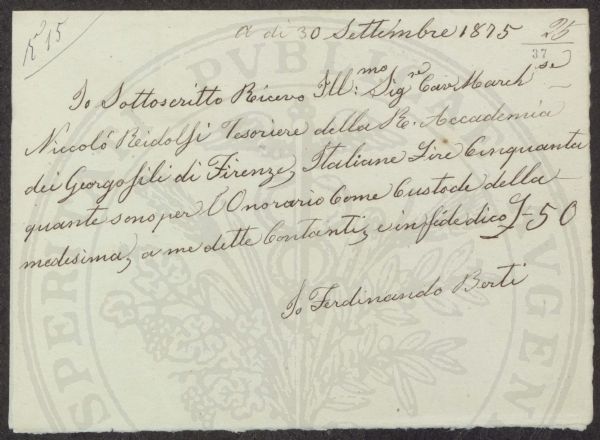 N° 15
a di 30 Settembre 1875
25
37
Io Sottoscritto Ricevo Ill:mo Sigre Cav. Marchse
Niccoló Ridolfi Tesoriere della R. Accademia
dei Georgofili di Firenze, Italiane Lire Cinquanta
quante sono per l'Onorario Come Custode della
medesima, a me dette Contanti, e in féde dico £-50
Io Ferdinando Berti
PROSPERITATI PUBLICAE AUGENDAE